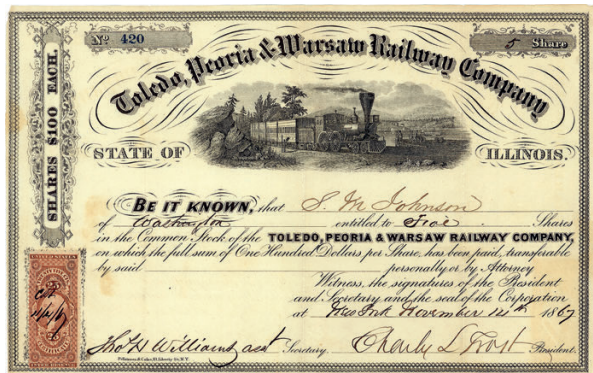 No. 420
5 Share
Toledo, Peoria & Warsaw Railway Company
SHARES $100 EACH.
STATE OF ILLINOIS.
BE IT KNOWN, that S. M. Johnson
of Washington entitled to Five Shares
in the Common Stock of the TOLEDO, PEORIA & WARSAW RAILWAY COMPANY,
on which the full sum of One Hundred Dollars per Share, has been paid, transferable
by said personally or by Attorney
Witness, the signatures of the President
and Secretary and the seal of the Corporation
at New York November 12th 1867
Thos. H Williams Secretary.
Charles L Frost President.
UNITED STATES